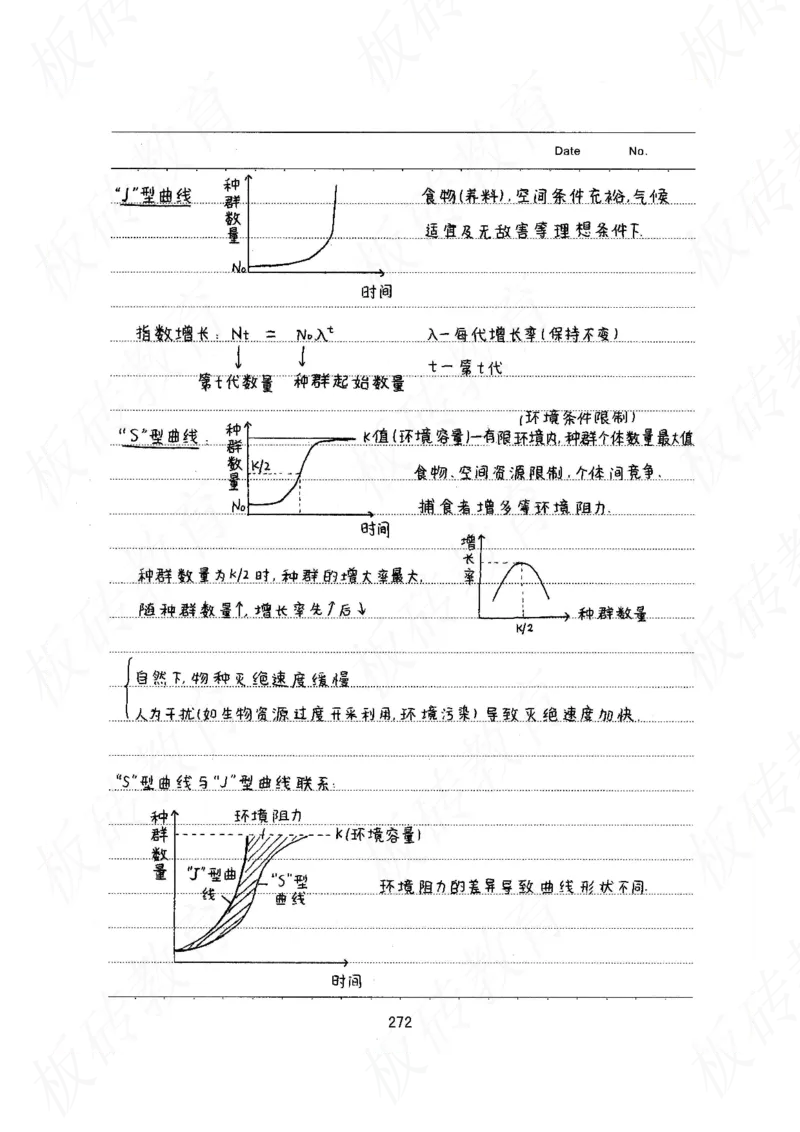 Date No.
"J"型曲线
种群数量
N₀
时间
食物(养料),空间条件充裕,气候
适宜及无敌害等理想条件下.
指数增长: Nt = N₀λᵗ
λ—每代增长率(保持不变)
第t代数量 种群起始数量
t—第t代
(环境条件限制)
"S"型曲线:
种群数量
K/2
N₀
时间
K值(环境容量)—有限环境内,种群个体数量最大值
食物、空间资源限制,个体间竞争、
捕食者增多等环境阻力.
种群数量为K/2时,种群的增大率最大,
随种群数量↑,增长率先↑后↓
增长率
种群数量
K/2
自然下,物种灭绝速度缓慢
人为干扰(如生物资源过度开采利用,环境污染)导致灭绝速度加快.
"S"型曲线与"J"型曲线联系:
种群数量
环境阻力
K(环境容量)
"J"型曲线
"S"型曲线
时间
环境阻力的差异导致曲线形状不同.
272
板砖教育